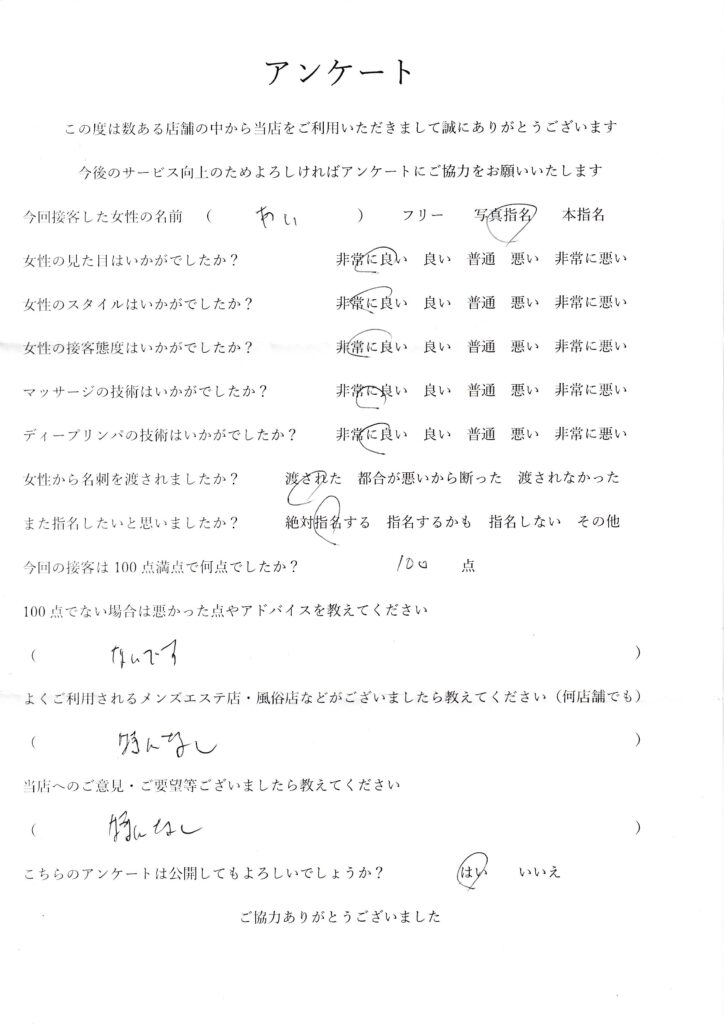 アンケート
この度は数ある店舗の中から当店をご利用いただきまして誠にありがとうございます
今後のサービス向上のためよろしければアンケートにご協力をお願いいたします
今回接客した女性の名前 ( あい ) フリー 写真指名 本指名
女性の見た目はいかがでしたか? 非常に良い 良い 普通 悪い 非常に悪い
女性のスタイルはいかがでしたか? 非常に良い 良い 普通 悪い 非常に悪い
女性の接客態度はいかがでしたか? 非常に良い 良い 普通 悪い 非常に悪い
マッサージの技術はいかがでしたか? 非常に良い 良い 普通 悪い 非常に悪い
ディープリンパの技術はいかがでしたか? 非常に良い 良い 普通 悪い 非常に悪い
女性から名刺を渡されましたか? 渡された 都合が悪いから断った 渡されなかった
また指名したいと思いましたか? 絶対指名する 指名するかも 指名しない その他
今回の接客は100点満点で何点でしたか? 100 点
100点でない場合は悪かった点やアドバイスを教えてください
( ないです )
よくご利用されるメンズエステ店・風俗店などがございましたら教えてください(何店舗でも)
( 特になし )
当店へのご意見・ご要望等ございましたら教えてください
( 特になし )
こちらのアンケートは公開してもよろしいでしょうか? はい いいえ
ご協力ありがとうございました